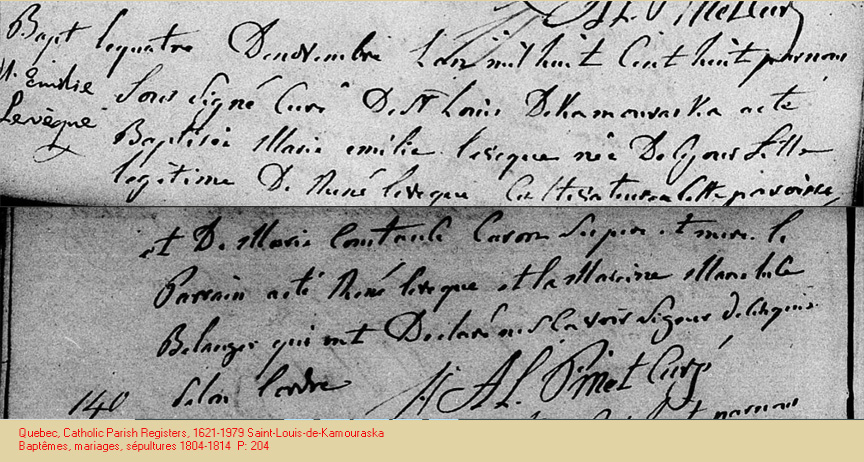 Bapt
M. Emilie
Levêque
le quatre De novembre L'an mil huit Cent huit par nous
Sous Signé Curé De St Louis De Kamouraska a eté
Baptisée Marie emilie levecque née De Ce jour fille
legitime De Réné levecque Cultivateur en Cette paroisse,
et De Marie Constance Caron Ses pere et mere. le
Parrain a eté Réné levecque et la Marraine Marie
Belanger qui ont Declaré ne Scavoir Signer De Ce requis
Selon l'ordre
J. AL. Pinet Curé
140
Quebec, Catholic Parish Registers, 1621-1979 Saint-Louis-de-Kamouraska
Baptêmes, mariages, sépultures 1804-1814 P: 204